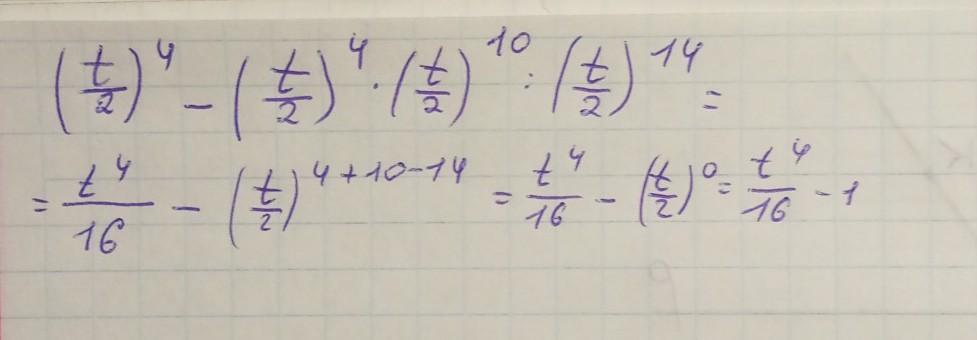 (t/2)^4 - (t/2)^4 · (t/2)^10 : (t/2)^14 =
= t^4/16 - (t/2)^4+10-14 = t^4/16 - (t/2)^0 = t^4/16 - 1